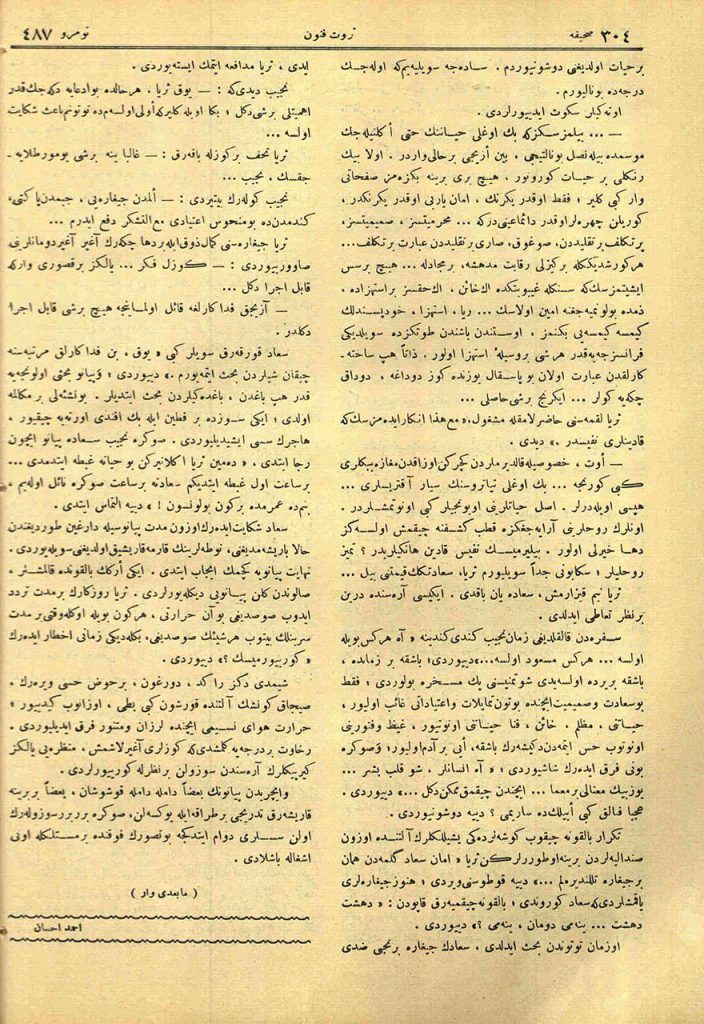 ٣٠٤ صحيفه
ثروت فنون
نومرو ٤٨٧
بر حيات اولديغنى دوشونيوردم . ساده‌جه سويليه‌يم كه اوله‌جك
درجه‌ده بوناليورم .
اوته‌كيلر سكوت ايدييورلردى .
— ... بيلمزسكز كه بك اوغلى حياتنك حتى أك
موسمنده بيله نصل بونالتيجى ، بين آزيجى بر حالى واردر . اولا بيك
رنكلى بر حيات كورونور ، هيچ برى برينه بكزه‌مز صفحاتى
وار كبى كلير ؛ فقط اوقدر يكرنك ، امان ياربى اوقدر يكرنكدر ،
كوريلن چهره‌لر اوقدر دائما عينيدر كه ... محرميتسز ، صميميتسز ،
پر تكلف بر تقليددن، صوغوق، صارى بر تقليددن عبارت بر تكلف...
هر كورشديككله بر كيزلى رقابت مدهشه، بر مجادله ... هيچ برسس
ايشيتمزسك كه سنكله غيبوبتكده ك خائن ، اك حقسز بر استهزاده ،
ذمده بولونميه‌جغنه امين اولاسك ... ريا . استهزا ، خودپسندلك
كيمسه كيمسه‌يى بكنمز ، اوستندن باشندن طوتكزده سويلديكى
فرانسزجه‌يه قدر هر شى بر وسيلهٔ استهزا اولور . ذاتاً هپ ساخته-
كارلقدن عبارت اولان بو ياسقال يوزنده كوز دوداغه ، دوداق
چكه‌يه كولر ... ايكرنج بر شى حاصلى ...
ثريا لقمه‌سنى حاضرلامقله مشغول، « مع هذا انكار ايده‌مزسك كه
قاديناری نفيسدر .» ديدى .
— أوت ، خصوصيله قالديرملردن كچركن اوزاقدن مغازه بيكلرى
كبى كورنجه ... بك اوغلى تياتروسنك سيار آقتريسلرى ...
هپسى اويله‌درلر . اصل حياتلرينى اويونجيلر كبى اونوتمشلردر .
اونلرك روحلرينى آرايه‌جقكزه قطب كشفنه چيقمش اولسه‌كز
دها خيرلى اولور . بيليرميسك نفيس قادين هانكيلريدر ؟ تميز
روحليلر ؛ سكا بونى جداً سويليورم ثريا، سعادتكك قيمتنى بيل ...
ثريا نيم قيزارمش، سعاده يان باقدى . ايكيسى آره‌سنده درين
بر نظر تعاطى ايدلدى .
سفره‌دن قالقلديغى زمان نجيب كندى كندينه « آه هركس بويله
اولسه ... هركس مسعود اولسه...» دييوردى؛ باشقه بر زمانده ،
باشقه بر يرده اولسه‌يدى شو تمنيسنى پك مسخره بولوردى ؛ فقط
بو سعادت وصميميت ايچنده بوتون تمايلات واعتياداتى غائب اوليور ،
حياتنى ، مظلم . خائن ، فنا حياتنى اونوتيور ، غيظ وفتورينى
اونوتوب حس ايتمه‌دن دكيشه‌رك باشقه، أيى بر آدم اوليور؛ وصوكره
بونى فرق ايده‌رك شاشيوردى ؛ « آه انسانلر ، شو قلب بشر ...
يوز بيك معنالى بر معما ... ايچندن چيقمق ممكن دكل ...» دييوردى .
عجبا فنالق كبى أييلكده ساريمى ؟ دييه دوشونيوردى .
تكرار بالقونه چيقوب كوشه‌لرده‌كى يشيللكلرك آلتنده اوزون
صنداليه‌لردن برينه اوطوررلركن ثريا « امان سعاد كلمه‌دن همان
بر جيغاره تللنديره‌لم ...» دييه قوطوسنى ويردى ؛ هنوز جيغاره‌لرى
ياقمشلردى كه سعاد كوروندى ؛ بالقونه چيقميه‌رق قاپودن : « دهشت
دهشت ... ينه‌مى دومان ، ينه‌مى ؟» دييوردى .
اوزمان توتوندن بحث ايدلدى ، سعادك جيغاره برنجى ضدى
ايدى ، ثريا مدافعه ايتمك ايسته‌يوردى .
نجيب ديدى كه : — يوق ثريا ، هرحالده بو ادعايه دكه‌جك قدر
اهميتلى بر شى دكل ؛ بكا اويله كلير كه أولى اولسه‌م ده توتونم باعث شكايت
اولسه ...
ثريا تحف بر كوزله باقه‌رق : — غالبا ينه بر شى يومورطلايه-
جقسك ، نجيب ...
نجيب كوله‌رك بيتيردى : — ألمدن جيغاره‌يى ، جيبمدن پاكتى،
كندمدن ده بو منحوس اعتيادى مع التشكر دفع ايدرم ...
ثريا جيغاره‌سنى كمال ذوق ايله بر دها چكه‌رك آغير آغير دومانلرينى
صاووريوردى : — كوزل فكر ... يالكز بر قصورى وار كه
قابل اجرا دكل ...
— آزيجق فداكارلغه قائل اولماينجه هيچ بر شى قابل اجرا
دكلدر .
سعاد قورقه‌رق سويلر كبى « يوق ، بن فداكارلق مرتبه‌سنه
چيقان شيلردن بحث ايتمه‌يورم .» دييوردى ؛ وپيانو بحثى اولونجه‌يه
قدر هپ باغدن ، باغده‌كيلردن بحث ايتديلر . بو نشئه‌لى بر مكالمه
اولدى ؛ ايكى سوزده بر فطين ايله بك افندى اورته‌يه چيقيور ،
هاجرك سسى ايشيديليوردى . صوكره نجيب سعاده پيانو ايچون
رجا ايتدى ، « ده‌مين ثريا آكلاتيركن بو حياته غبطه ايتدم‌دى ...
بر ساعت اول غبطه ايتديكم سعادته بر ساعت صوكره نائل اوله‌يم ،
بنم ده عمرمده بر كون بولونسون !» دييه التماس ايتدى .
سعاد شكايت ايده‌رك اوزون مدت پيانوسيله دارغين طورديغندن
حالا باريشه‌مديغنى، نوطه‌لرينك قارمه قاريشيق اولديغنى سويله‌يوردى .
نهايت پيانويه كچمك ايجاب ايتدى . ايكى أركك بالقونده قالمشلر ،
صالوندن كلن پيانويى ديكله‌يورلردى . ثريا روزكارك بر مدت تردد
ايدوب صوصديغى بو آن حرارتى ، هر كون بويله اوكله‌وقتى بر مدت
سرينلك بيتوب هر شيئك صوصديغى، بكله‌ديكى زمانى اخطار ايده‌رك
« كورييورميسك ؟» دييوردى .
شيمدى دكز راكد ، دورغون ، بر حوض حسى ويره‌رك ،
صيجاق كونشك آلتنده قورشون كبى بطى ، اوزانوب كيدييور ؛
حرارت هواى نسيمى ايچنده لرزان ومتنور فرق ايديليوردى .
رخاوت بر درجه‌يه كلمشدى كه كوزلرى آغيرلاشمش ، منظره‌يى يالكز
كيرپيكلرك آره‌سندن سوزولن بر نظرله كورييورلردى .
وايچريدن پيانونك بعضاً دامله دامله قوشوشان ، بعضاً بر برينه
قاريشه‌رق تدريجى بر طراقه ايله يوكسه‌لن، صوكره برر برر سوزوله‌رك
اولن سسلرى دوام ايتدكجه بو تصورك فوقنده بر مستلكله اونى
اشغاله باشلادى .
( مابعدى وار )
احمد احسان